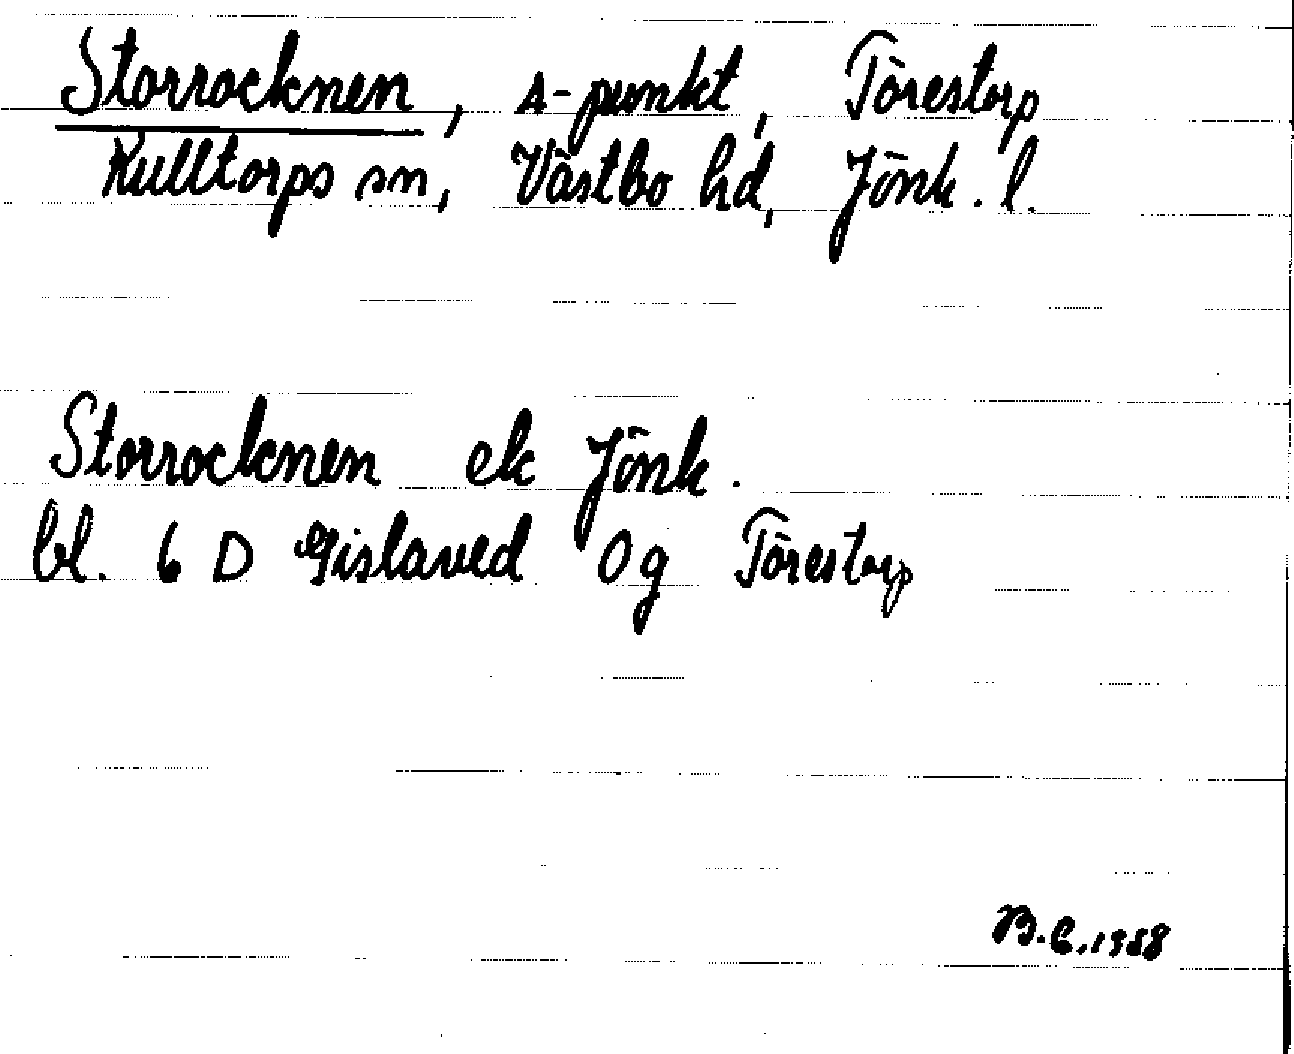 Storrocknen, A-punkt, Törestorp
Kulltorps sn, Västbo hd, Jönk. l.
Storrocknen ek Jönk.
bl. 6 D Gislaved 0g Törestorp
B.E. 1988